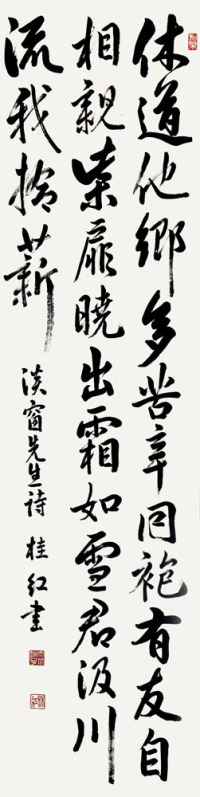 休道他鄉多苦辛同袍有友自
相親柴扉曉出霜如雪君汲川
流我拾薪
淡窗先生诗 桂红书